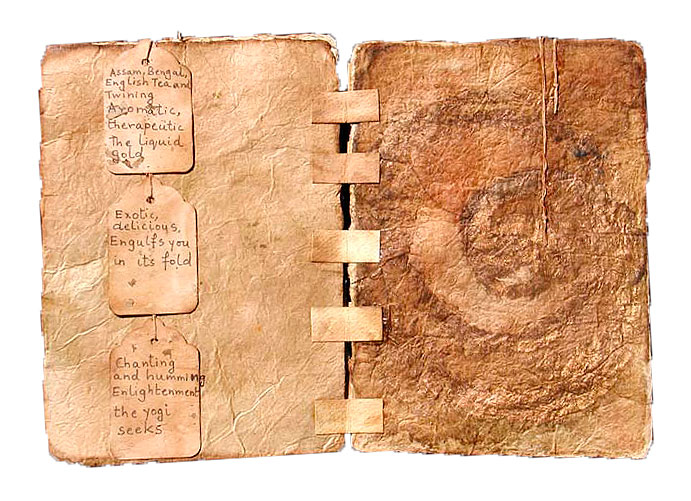 Assam, Bengal,
English Tea and
Twining
Aromatic,
therapeutic
The liquid
gold
Exotic,
delicious,
Engulfs you
in its fold
Chanting
and humming
Enlightenment
the yogi
seeks